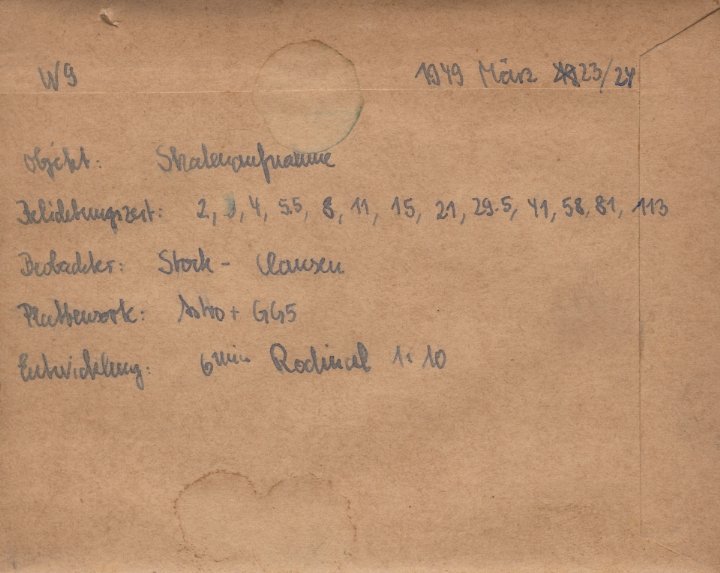 W9
1949 März 23/24
Objekt: Skalenaufnahme
Belichtungszeit: 2, 3, 4, 5.5, 8, 11, 15, 21, 29.5, 41, 58, 81, 113
Beobachter: Stock - Clausen
Plattensorte: Astro + GG5
Entwicklung: 6 min Rodinal 1:10